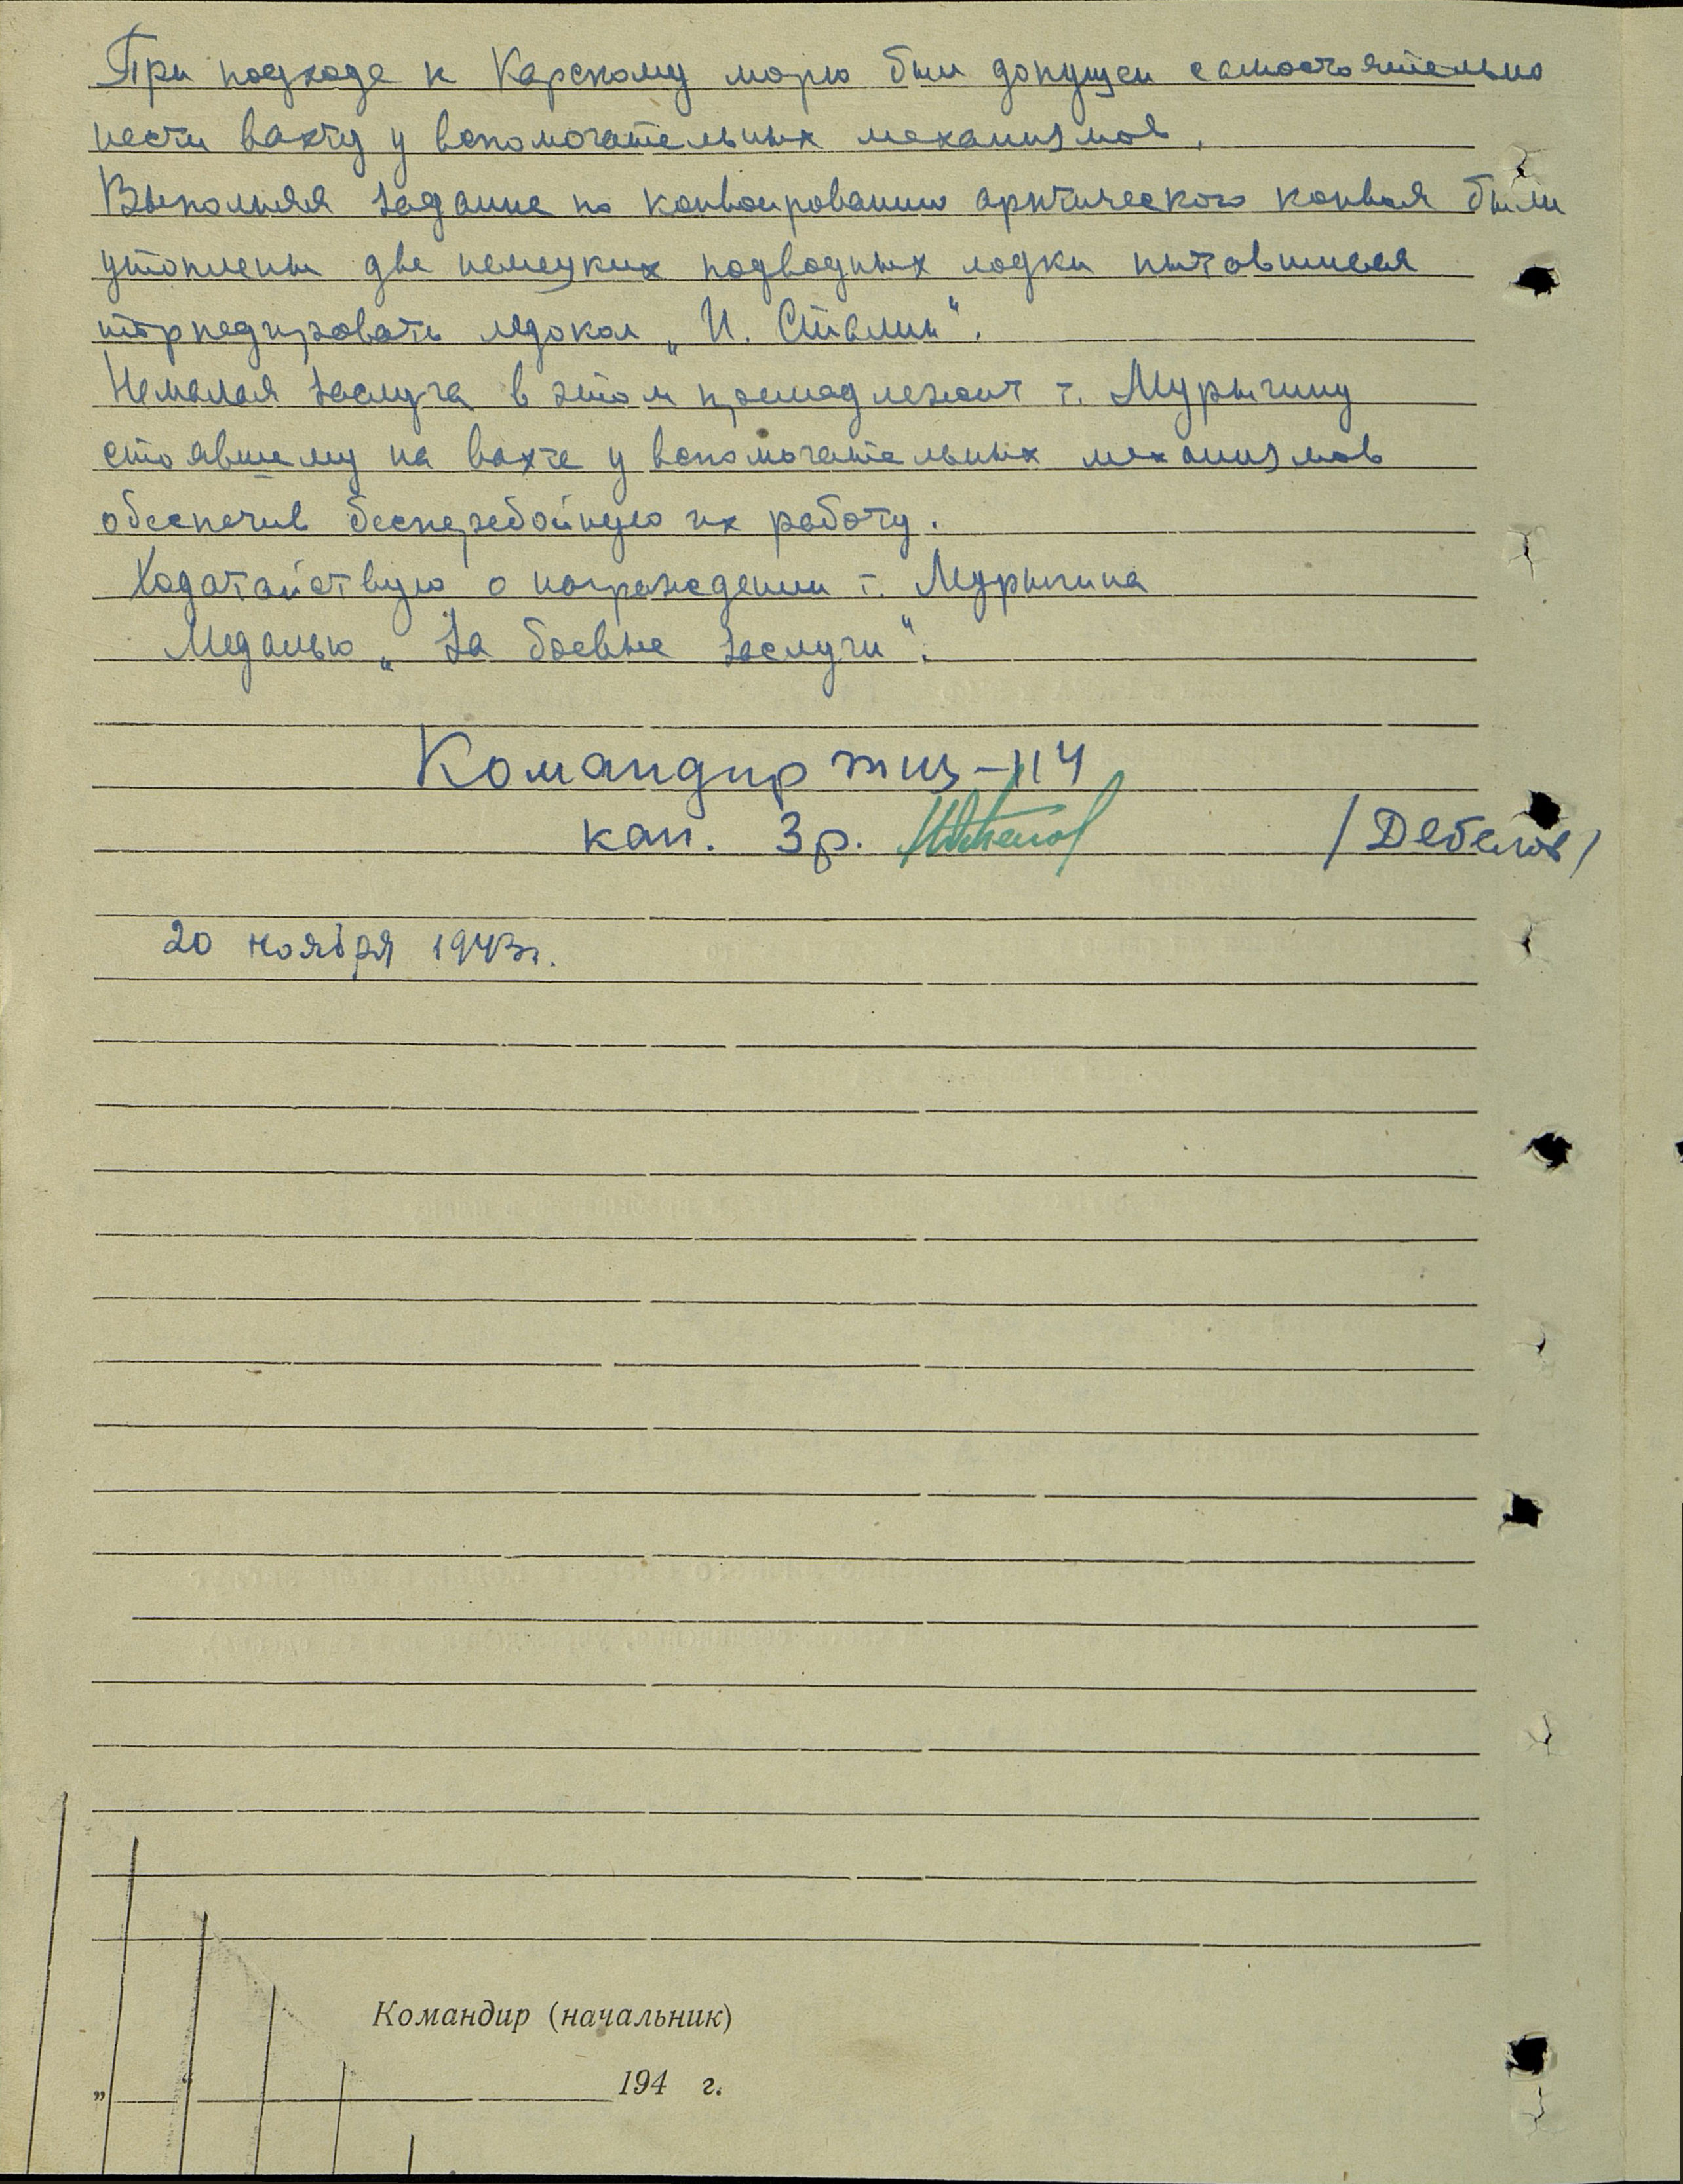 При подходе к Карскому морю был допущен самостоятельно
нести вахту у вспомогательных механизмов.
Выполняя задание по конвоированию арктического конвоя были
утоплены две немецких подводных лодки пытавшиеся
торпедировать ледокол „И. Сталин“.
Немалая заслуга в этом принадлежит т. Мурыгину
стоявшему на вахте у вспомогательных механизмов
обеспечив бесперебойную их работу.
Ходатайствую о награждении т. Мурыгина
Медалью „За боевые заслуги“.
Командир тщ-114
кап. 3 р. /Дебелов/
20 ноября 1943 г.
Командир (начальник)
„ “ 194 г.